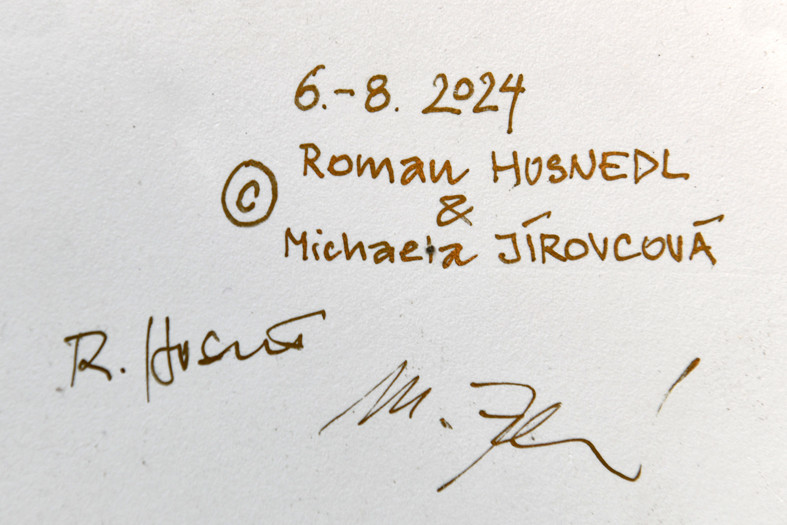 6.-8. 2024
© Roman HUSNEDL
&
Michaela JÍROVCOVÁ
R. Husn
M.